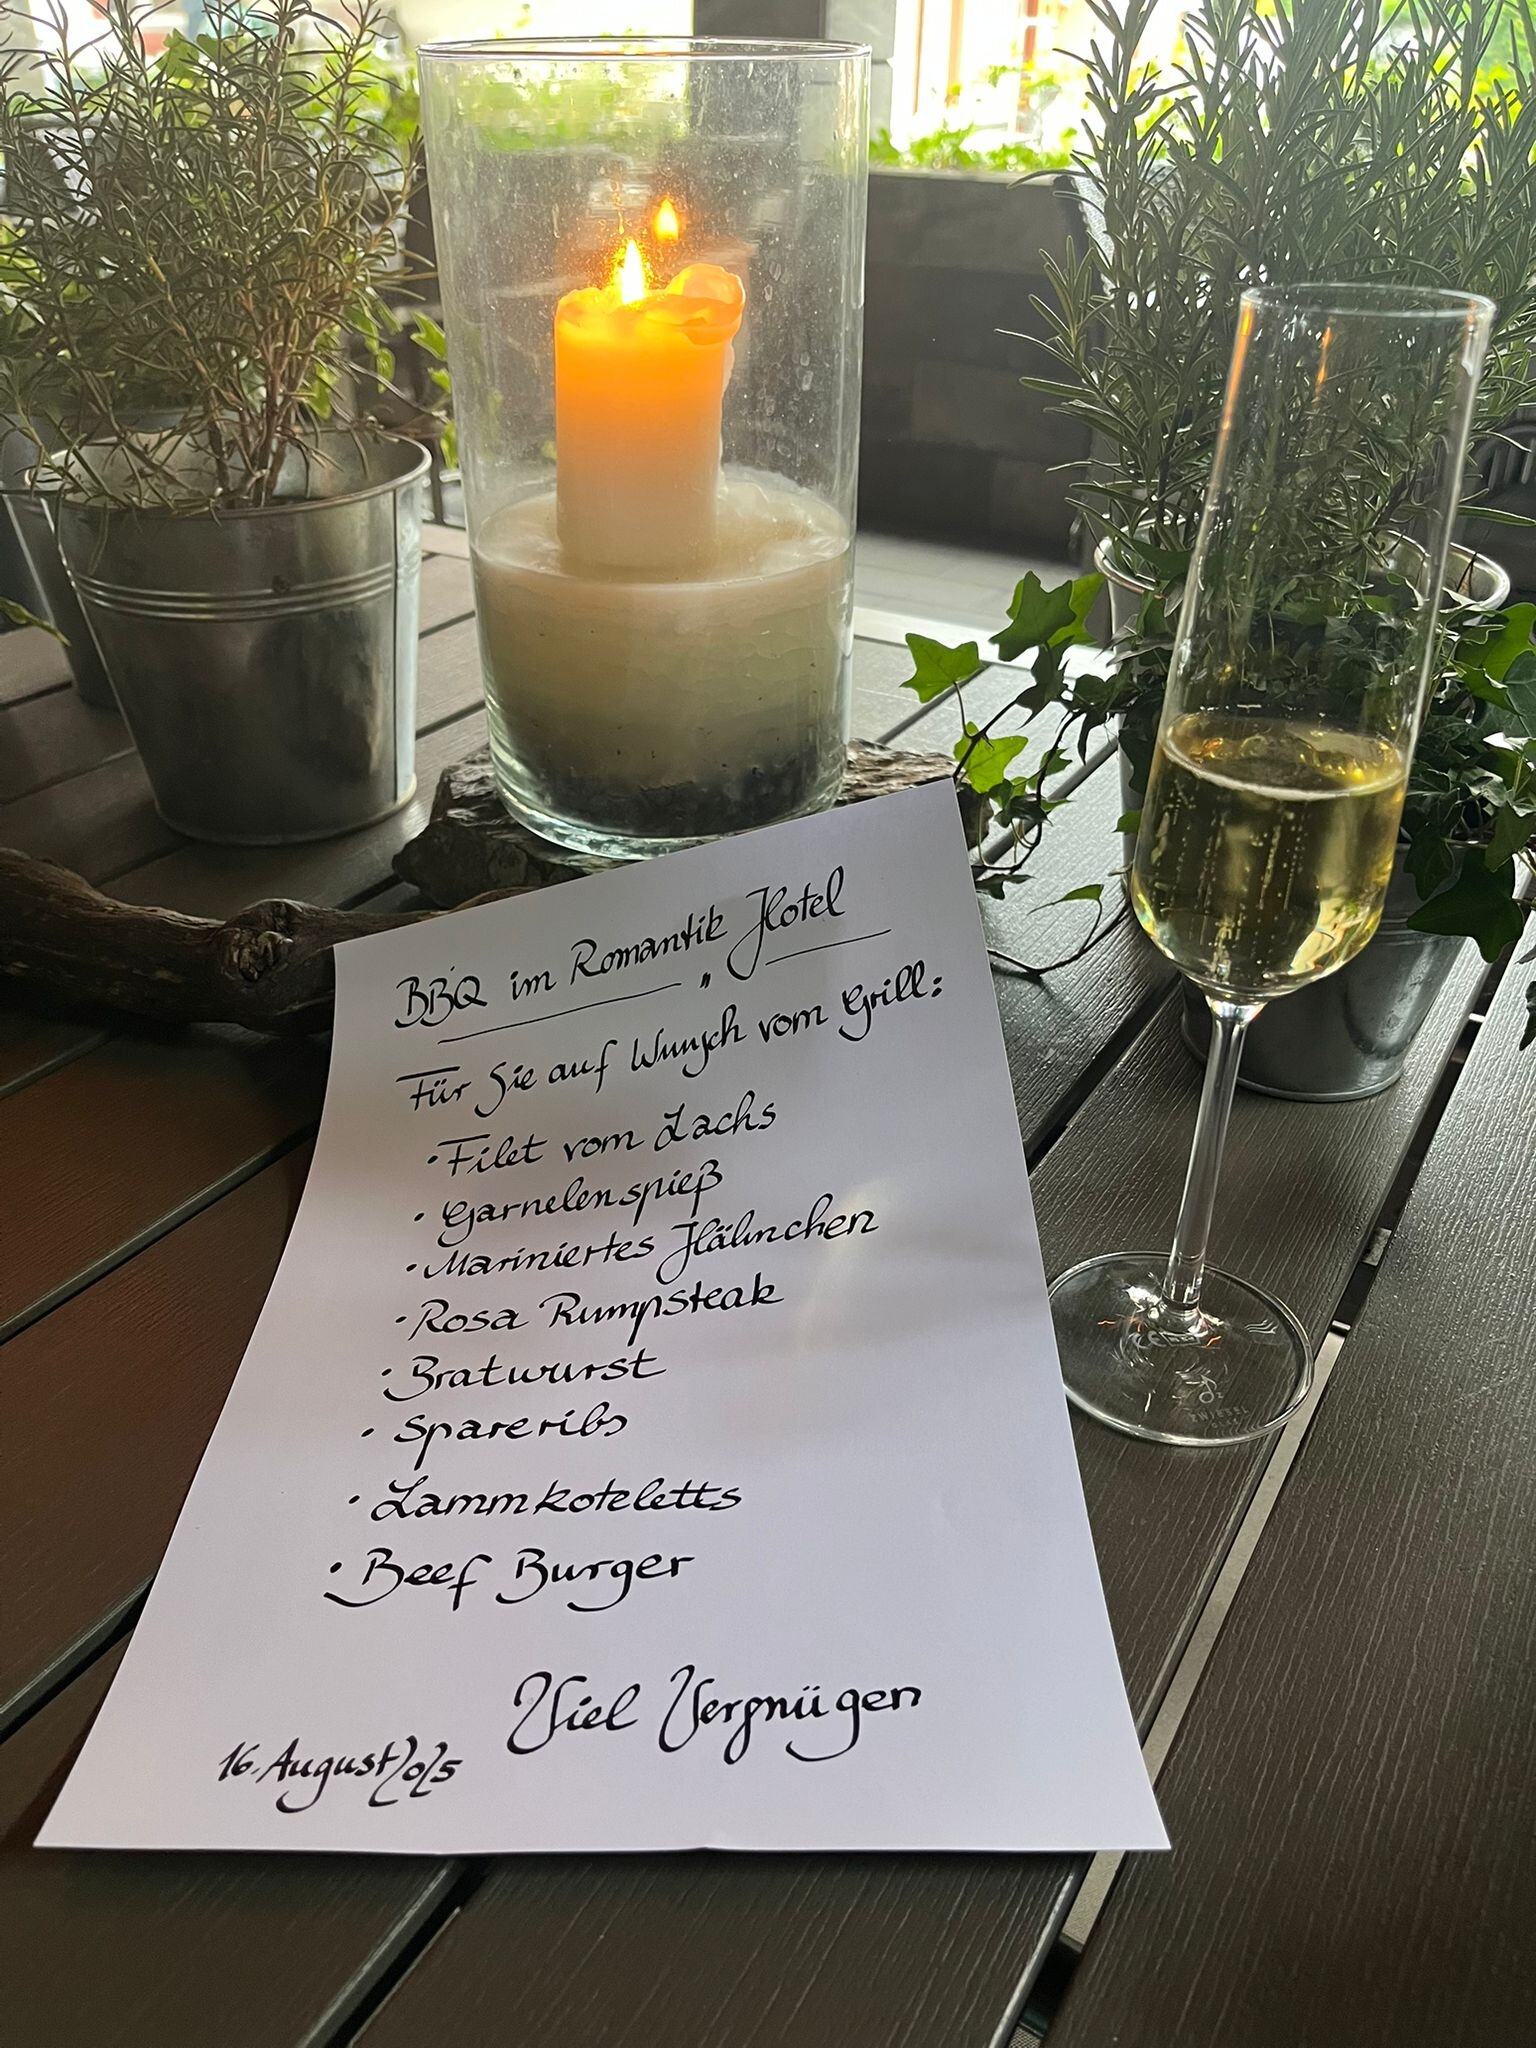 BBQ im Romantik Hotel
"
Für Sie auf Wunsch vom Grill:
· Filet vom Lachs
· Garnelenspieß
· Mariniertes Hähnchen
· Rosa Rumpsteak
· Bratwurst
· Spareribs
· Lammkoteletts
· Beef Burger
Viel Vergnügen
16. August 2025
ZWIESEL